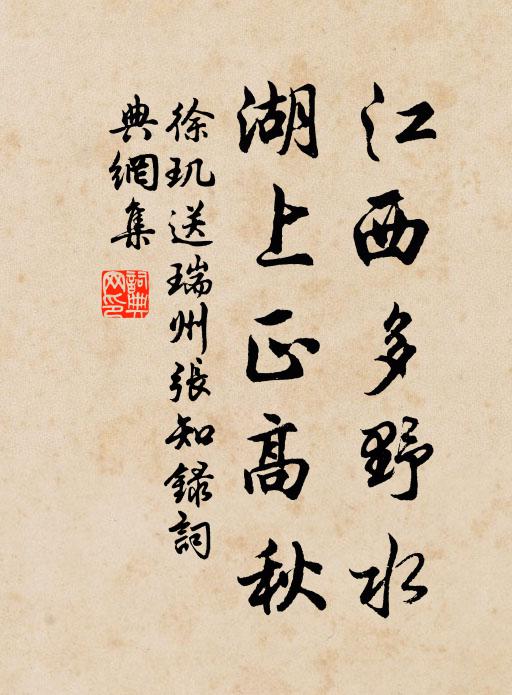 江西多野水
湖上正高秋
徐玑送瑞州張知錄詞
典網集
詞典网印